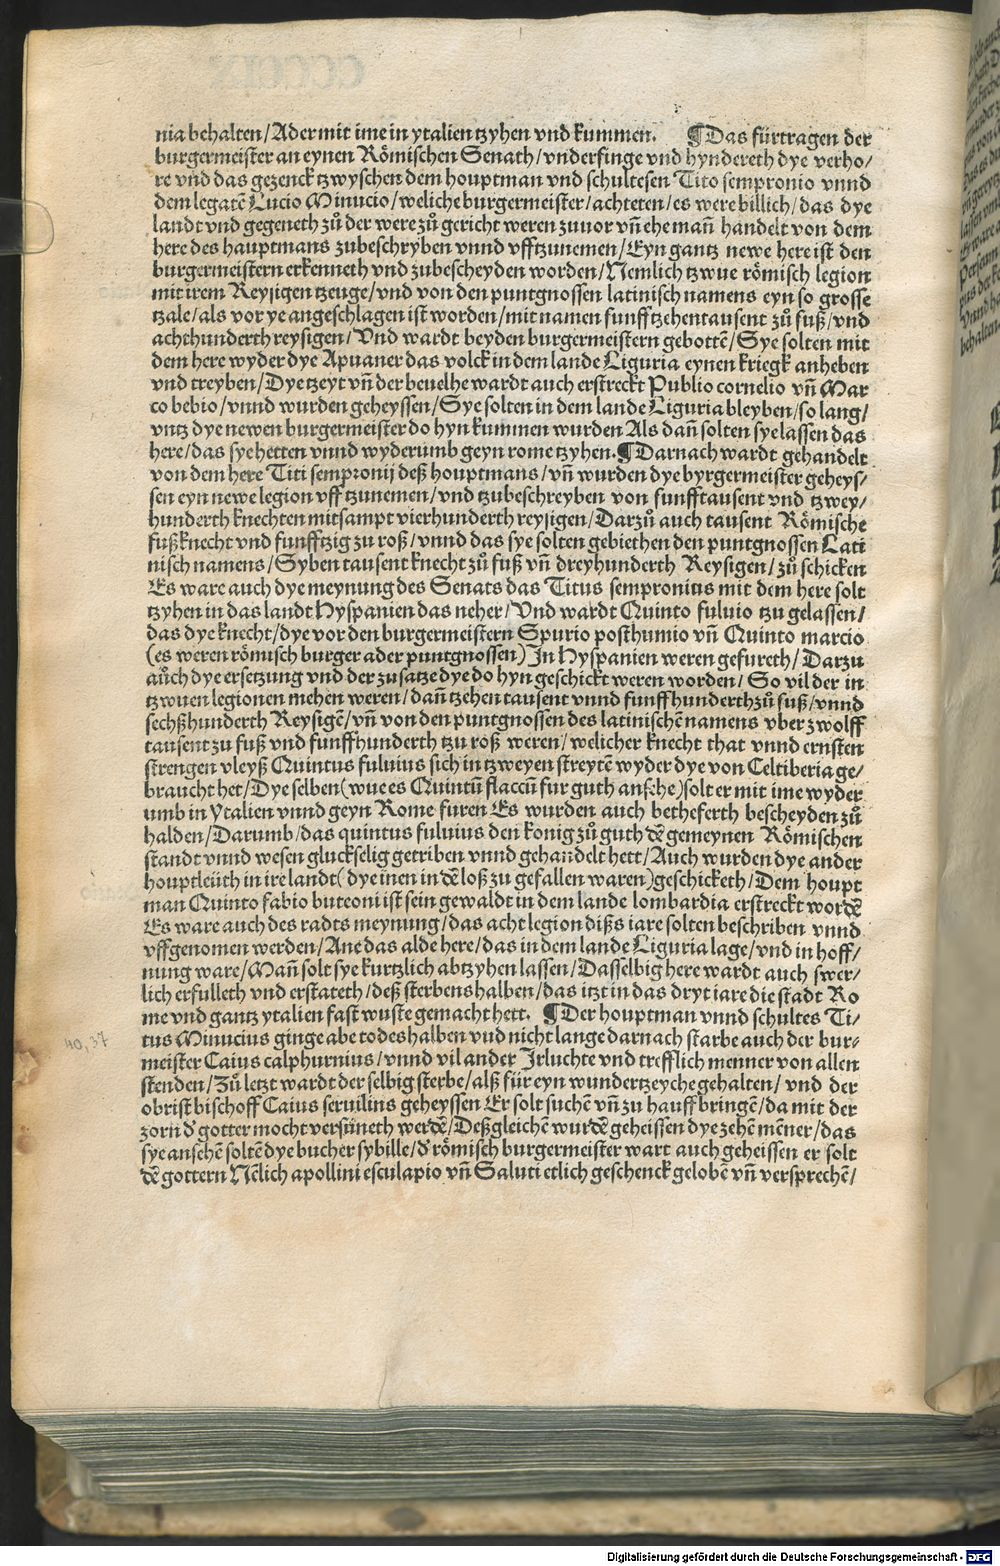 nia behalten/Ader mit ime in ytalien tzyhen vnd kummen. ¶Das fürtragen der
burgermeister an eynen Römischen Senath/vnderfinge vnd hyndereth dye verho/
re vnd das gezenck tzwyschen dem houptman vnd schultesen Tito sempronio vnnd
dem legatē Lucio Minucio/weliche burgermeister/achteten/es were billich/das dye
landt vnd gegeneth zů der were zů gericht weren zuuor vn̄ ehe man̄ handelt von dem
here des hauptmans zubeschryben vnnd vfftzunemen/Eyn gantz newe here ist den
burgermeistern erkenneth vnd zubescheyden worden/Nemlich tzwue römisch legion
mit irem Reysigen tzeuge/vnd von den puntgnossen latinisch namens eyn so grosse
tzale/als vor ye angeschlagen ist worden/mit namen funfftzehentausent zů fuß/vnd
achthunderth reysigen/Vnd wardt beyden burgermeistern gebottē/Sye solten mit
dem here wyder dye Apuaner das volck in dem lande Liguria eynen kriegk anheben
vnd treyben/Dye tzeyt vn̄ der beuelhe wardt auch erstreckt Publio cornelio vn̄ Mar
co bebio/vnnd wurden geheyssen/Sye solten in dem lande Liguria bleyben/so lang/
vntz dye newen burgermeister do hyn kummen wurden Als dan̄ solten sye lassen das
here/das sye hetten vnnd wyderumb geyn rome tzyhen.¶Darnach wardt gehandelt
von dem here Titi sempronij deß houptmans/vn̄ wurden dye byrgermeister geheys/
sen eyn newe legion vff tzunemen/vnd tzubeschreyben von funfftausent vnd tzwey/
hunderth knechten mitsampt vierhunderth reysigen/Darzů auch tausent Römische
fußknecht vnd funfftzig zu roß/vnnd das sye solten gebiethen den puntgnossen Lati
nisch namens/Syben tausent knecht zů fuß vn̄ dreyhunderth Reysigen/zů schicken
Es ware auch dye meynung des Senats das Titus sempronius mit dem here solt
tzyhen in das landt Hyspanien das neher/Vnd wardt Quinto fuluio tzu gelassen/
das dye knecht/dye vor den burgermeistern Spurio posthumio vn̄ Quinto marcio
(es weren römisch burger ader puntgnossen) In Hyspanien weren gefureth/Darzu
aůch dye ersetzung vnd der zusatze dye do hyn geschickt weren worden/So vil der in
tzwuen legionen mehen weren/dan̄ tzehen tausent vnnd funffhunderth zů fuß/vnnd
sechßhunderth Reysigē/vn̄ von den puntgnossen des latinischē namens vber zwolff
tausent zu fuß vnd funffhunderth tzu roß weren/welicher knecht that vnnd ernsten
strengen vleyß Quintus fuluius sich in tzweyen streytē wyder dye von Celtiberia ge/
braucht het/Dye selben(wue es Quintū flaccū fur guth ansehe)solt er mit ime wyder
umb in Ytalien vnnd geyn Rome furen Es wurden auch betheferth bescheyden zů
halden/Darumb/das quintus fuluius den konig zů guth dē gemeynen Römischen
standt vnnd wesen gluckselig getriben vnnd gehandelt hett/Auch wurden dye ander
houptleüth in ire landt(dye inen in dē loß zu gefallen waren)geschicketh/Dem houpt
man Quinto fabio buteoni ist sein gewaldt in dem lande lombardia erstreckt wordē
Es ware auch des radts meynung/das acht legion dißs iare solten beschriben vnnd
vffgenomen werden/Ane das alde here/das in dem lande Liguria lage/vnd in hoff/
nung ware/Man̄ solt sye kurtzlich abtzyhen lassen/Dasselbig here wardt auch swer/
lich erfulleth vnd erstateth/deß sterbens halben/das itzt in das dryt iare die stadt Ro
me vnd gantz ytalien fast wuste gemacht hett. ¶Der houptman vnnd schultes Ti/
tus Minucius ginge abe todes halben vnd nicht lange darnach starbe auch der bur/
meister Caius calphurnius/vnnd vil ander Irluchte vnd trefflich menner von allen
stenden/Zů letzt wardt der selbig sterbe/alß für eyn wundertzeyche gehalten/vnd der
obrist bischoff Caius seruilins geheyssen Er solt suchē vn̄ zu hauff bringē/da mit der
zorn d' gotter mocht versüneth werdē/Deßgleichē wurdē geheissen dye zehē mēner/das
sye ansehē soltē dye bucher sybille/d' römisch burgermeister wart auch geheissen er solt
dē gottern Nēlich apollini esculapio vn̄ Saluti etlich geschenck gelobē vn̄ versprechē/
40,37
Digitalisierung gefördert durch die Deutsche Forschungsgemeinschaft - DFG